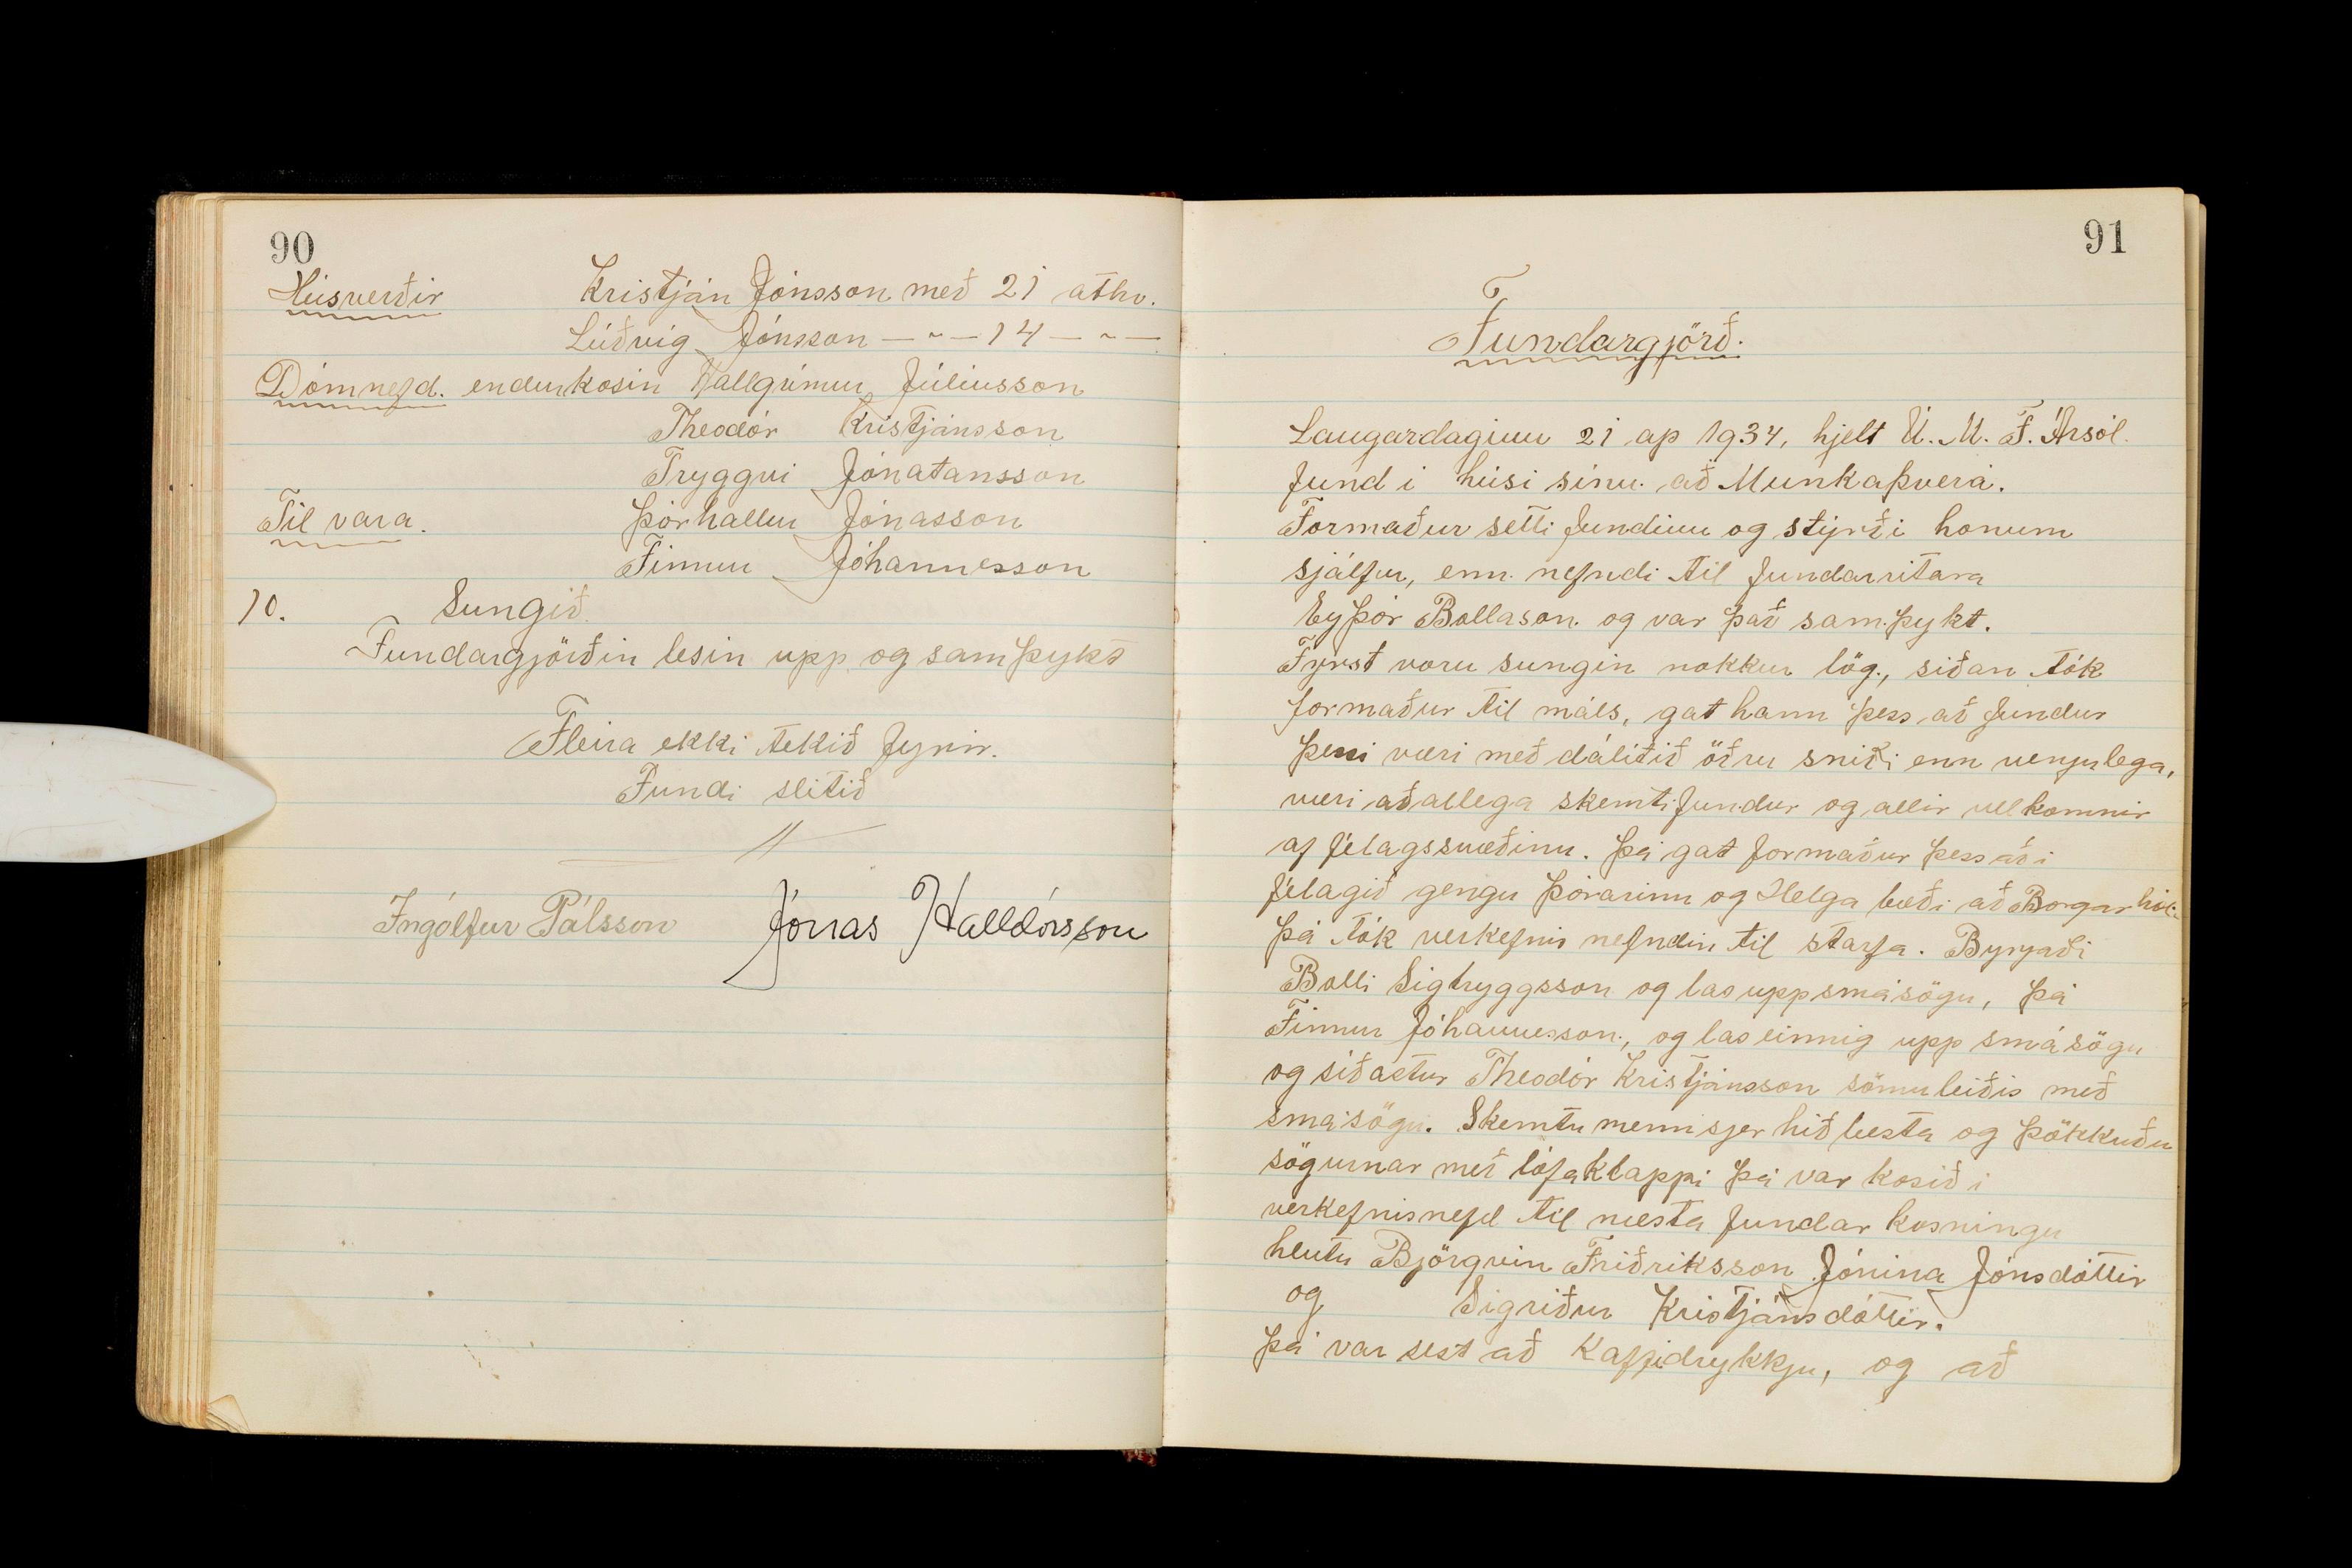 90
Húsverðir Kristján Jónsson með 21 athv.
Lúðvig Jónsson — " — 14 — " —
Dómnefd. endurkosin Hallgrímur Júlíusson
Theodór Kristjánsson
Tryggvi Jónatansson
Til vara. Þórhallur Jónasson
Finnur Jóhannesson
10. Sungið.
Fundargjörðin lesin upp og samþykt
Fleira ekki tekið fyrir.
Fundi slitið
Ingólfur Pálsson Jónas Halldórsson
91
Fundargjörð.
Laugardaginn 21 ap 1934, hjelt U. M. F. Ársól
fund í húsi sínu að Munkaþverá.
Formaður setti fundinn og stýrði honum
sjálfur, enn nefndi til fundarritara
Eyþór Bollason og var það samþykt.
Fyrst voru sungin nokkur lög, síðan tók
formaður til máls, gat hann þess að fundur
þessi væri með dálítið öðru sniði enn venjulega,
væri aðallega skemtifundur og allir velkomnir
af félagssvæðinu. Þá gat formaður þess að í
félagið gengu Þórarinn og Helga bæði að Borgarhól
Þá tók verkefnis nefndin til starfa. Byrjaði
Bolli Sigtryggsson og las upp smásögu, þá
Finnur Jóhannesson, og las einnig upp smásögu
og síðastur Theodór Kristjánsson sömuleiðis með
smásögu. Skemtu menn sjer hið besta og þökkuðu
sögurnar með lófaklappi Þá var kosið í
verkefnisnefd til næsta fundar kosningu
hlutu Björgvin Friðriksson Jónína Jónsdóttir
og Sigríður Kristjánsdóttir.
Þá var sest að Kaffidrykkju, og að